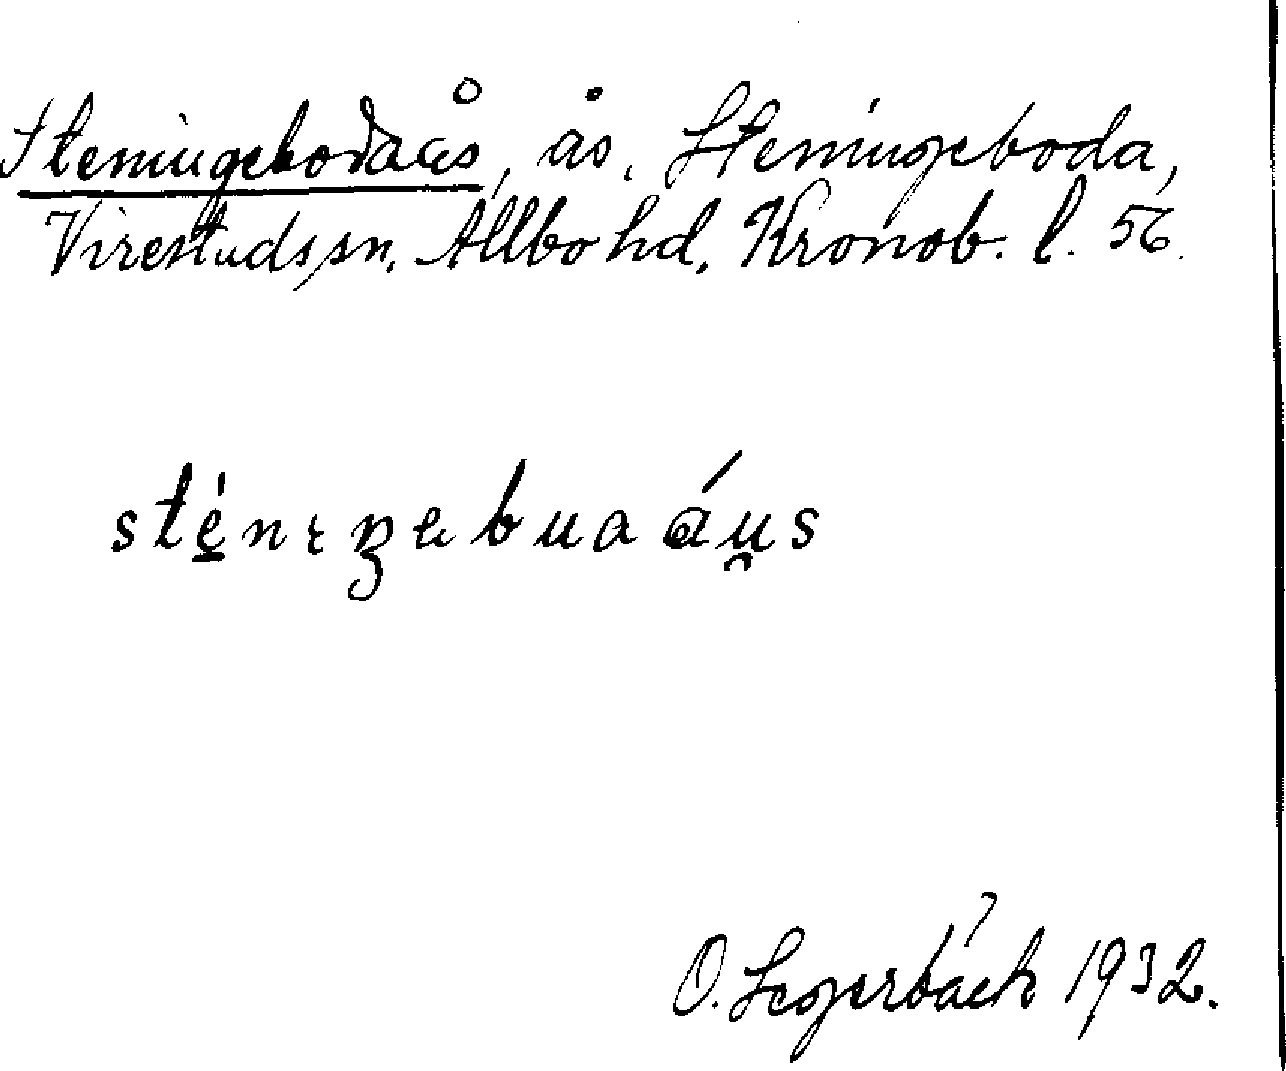 Steningebodaås, ås, Steningeboda,
Virestads sn, Allbo hd, Kronob. l. 56.
sté̱nɩŋebuaáu̯s
O. Segerbäck 1932.